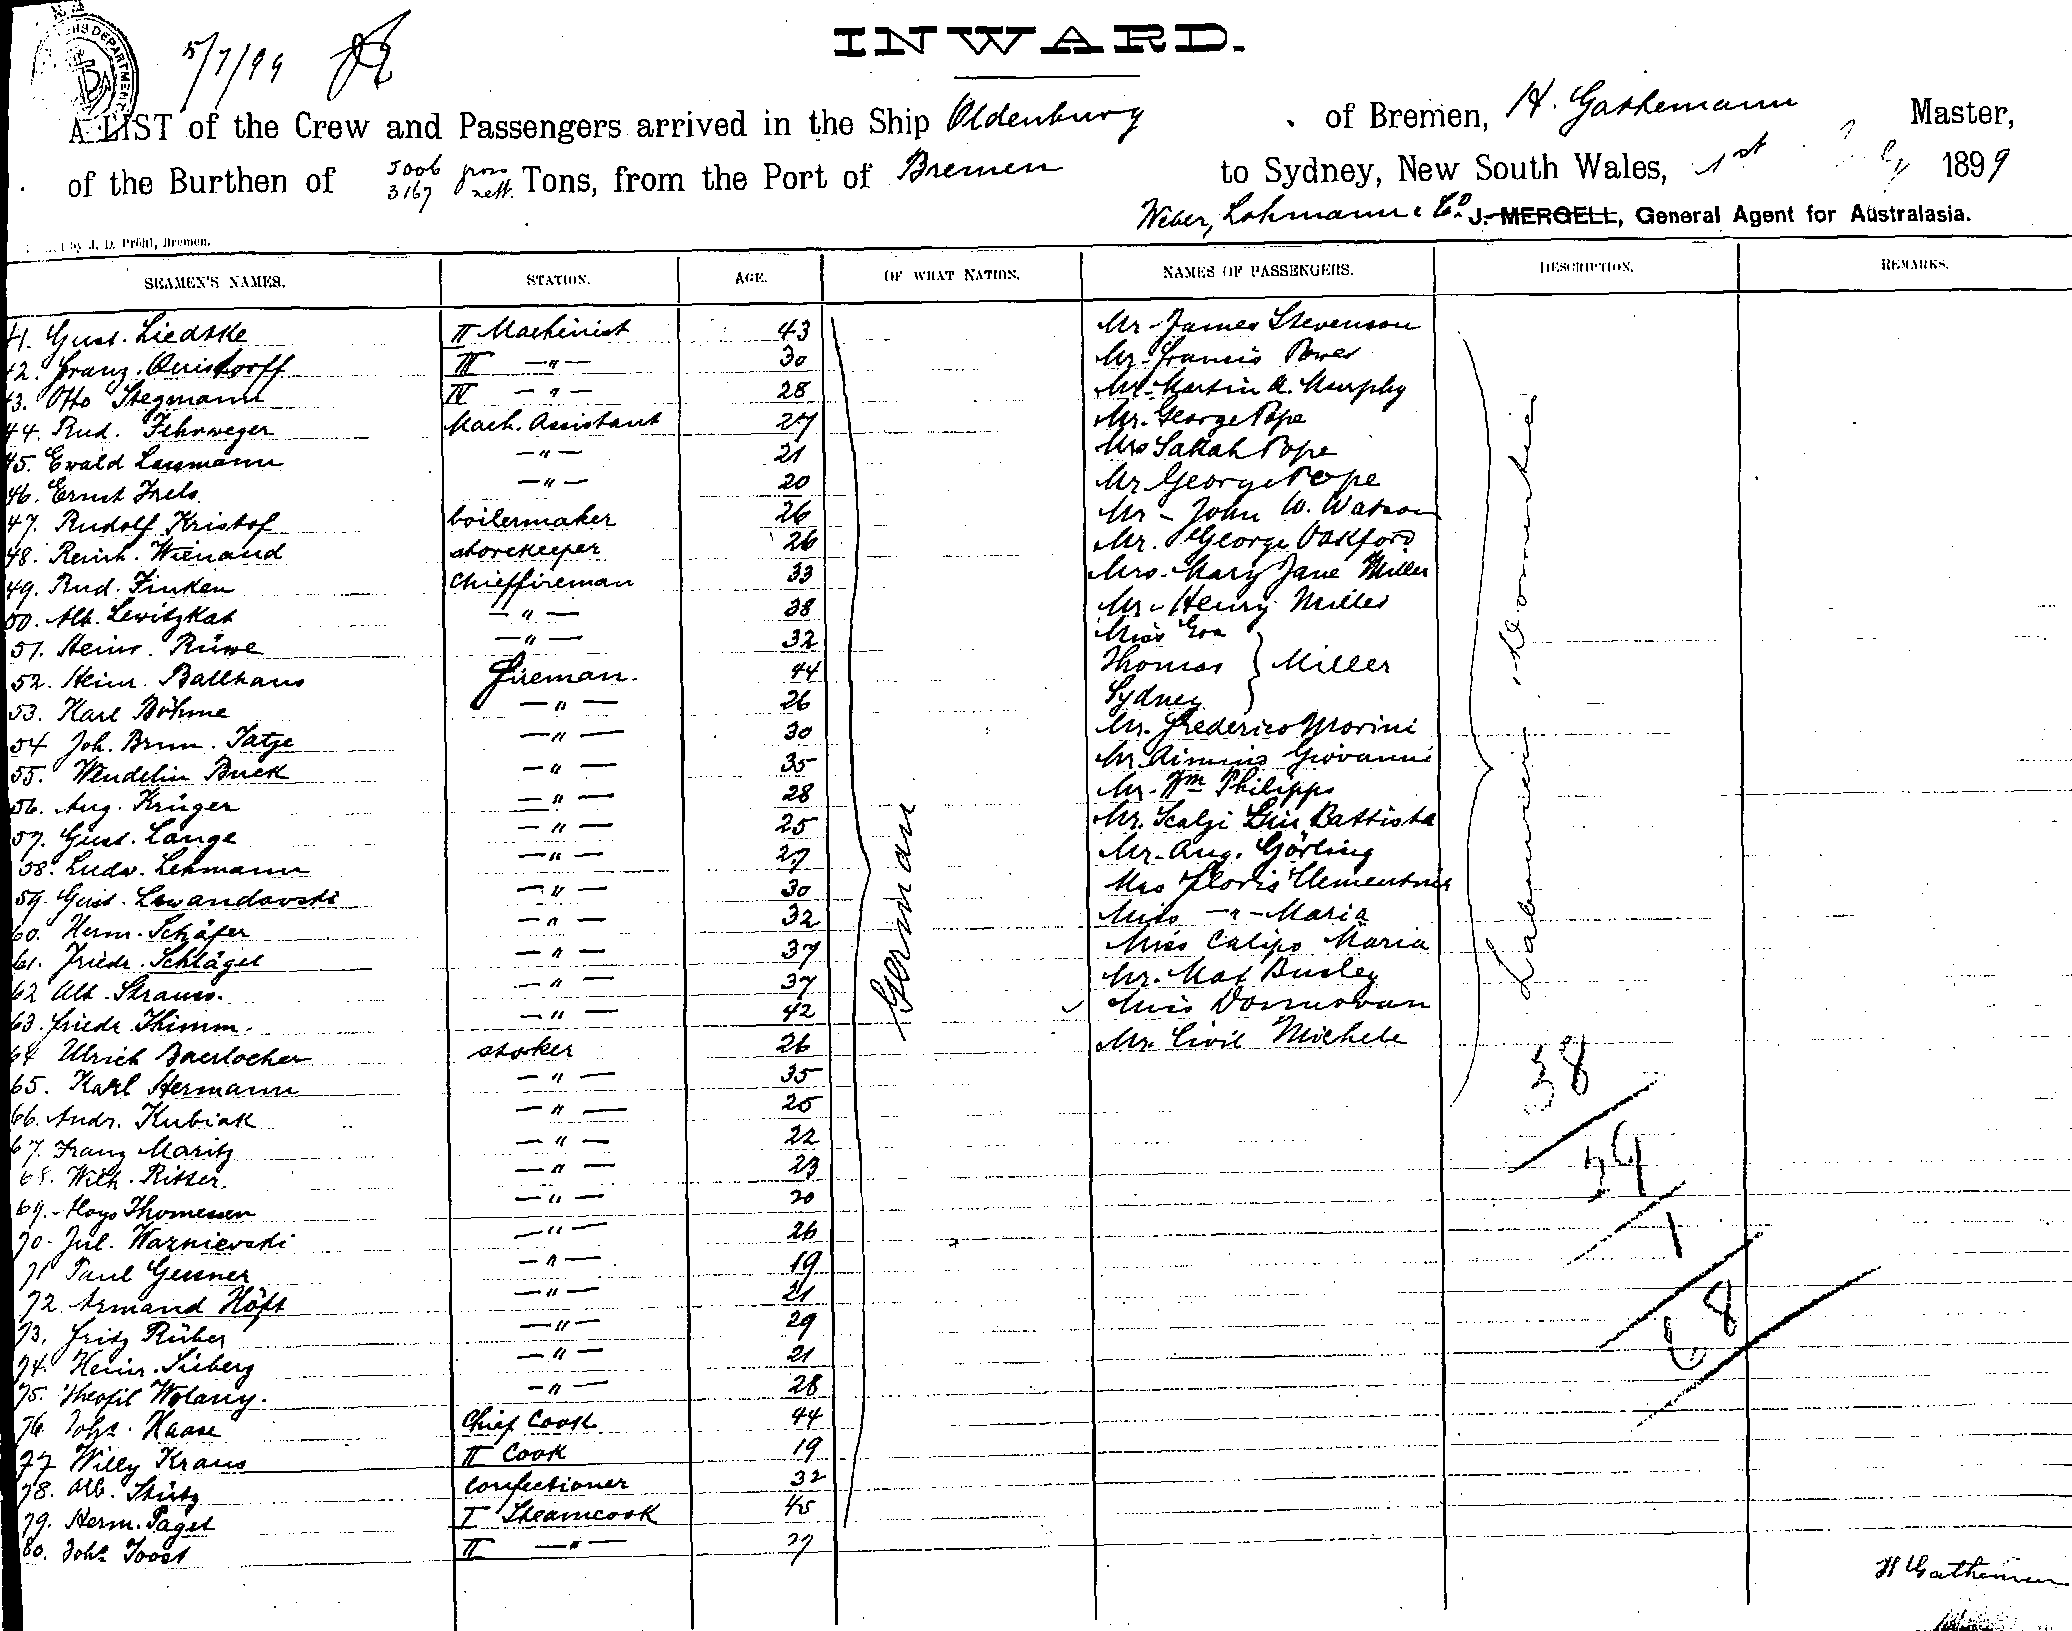 5/7/99
INWARD.
A LIST of the Crew and Passengers arrived in the Ship Oldenburg of Bremen, H. Gathemann Master,
of the Burthen of 5006 gross 3167 nett. Tons, from the Port of Bremen to Sydney, New South Wales, 1st July 1899
Weber, Lohmann & Co. J. MERGELL, General Agent for Australasia.
by J. D. Pröhl, Bremen.
SEAMEN'S NAMES. STATION. AGE. OF WHAT NATION. NAMES OF PASSENGERS. DESCRIPTION. REMARKS.
41. Gust. Liedtke II Machinist 43 Mr. James Stevenson
42. Franz Quistorff III —"— 30 Mr. Francis Power
43. Otto Stegmann IV —"— 28 Mr. Martin A. Murphy
44. Rud. Fehrweger Mach. Assistant 27 Mr. George Pope
45. Ewald Lessmann —"— 21 Mrs Sarah Pope
46. Ernst Frels —"— 20 Mr George Pope
47. Rudolf Kristof boilermaker 26 Mr - John W. Watson
48. Reinh. Wienand storekeeper 26 Mr. George Oakford
49. Rud. Finken Chieffireman 33 Mrs. Mary Jane Miller
50. Alb. Lewitzkat —"— 38 Mr. Henry Miller
51. Heinr. Rüwe —"— 32 Miss Eva
52. Heinr. Ballhaus fireman. 44 Thomas } Miller
53. Karl Böhme —"— 26 Sydney
54 Joh. Brun. Tatje —"— 30 Mr. Frederico Morini
55. Wendelin Buck —"— 35 Mr Giovanni
56. Aug. Krüger —"— 28 Mr. Wm Philipps
57. Gust. Lange —"— 25 Mr. Scalzi Battista
58. Ludw. Lehmann —"— 27 Mr. Aug. Görling
59. Gust. Lewandowski —"— 30 Mrs Floris Clementina
60. Herm. Schäfer —"— 32 Miss —"— Maria
61. Friedr. Schlägel —"— 37 Miss Calipo Maria
62 Alb. Strauss. —"— 37 Mr. Max Busley
63. Friedr. Thimm. —"— 42 Miss Donnovan
64 Ulrich Baerlocher stoker 26 Mr. Civil Michele
65. Karl Hermann —"— 35
66. Andr. Kubiak —"— 25
67. Franz Maritz —"— 22
68. Wilh. Ritter. —"— 23
69. Aloys Thomessen —"— 20
70. Jul. Warnievski —"— 26
71 Paul Gessner —"— 19
72. Armand Höft —"— 21
73. Fritz Rüber —"— 29
74. Heinr. Sieberg —"— 21
75. Theofil Wolany. —"— 28
76 Johs. Haase Chief Cook 44
77 Willy Kraus II Cook 19
78. Alb. Stütz Confectioner 32
79. Herm. Pagel I Steamcook 45
80. Johs. Joost II —"— 27
German
Labourers Domestics
38
29
1
68
H Gathemann